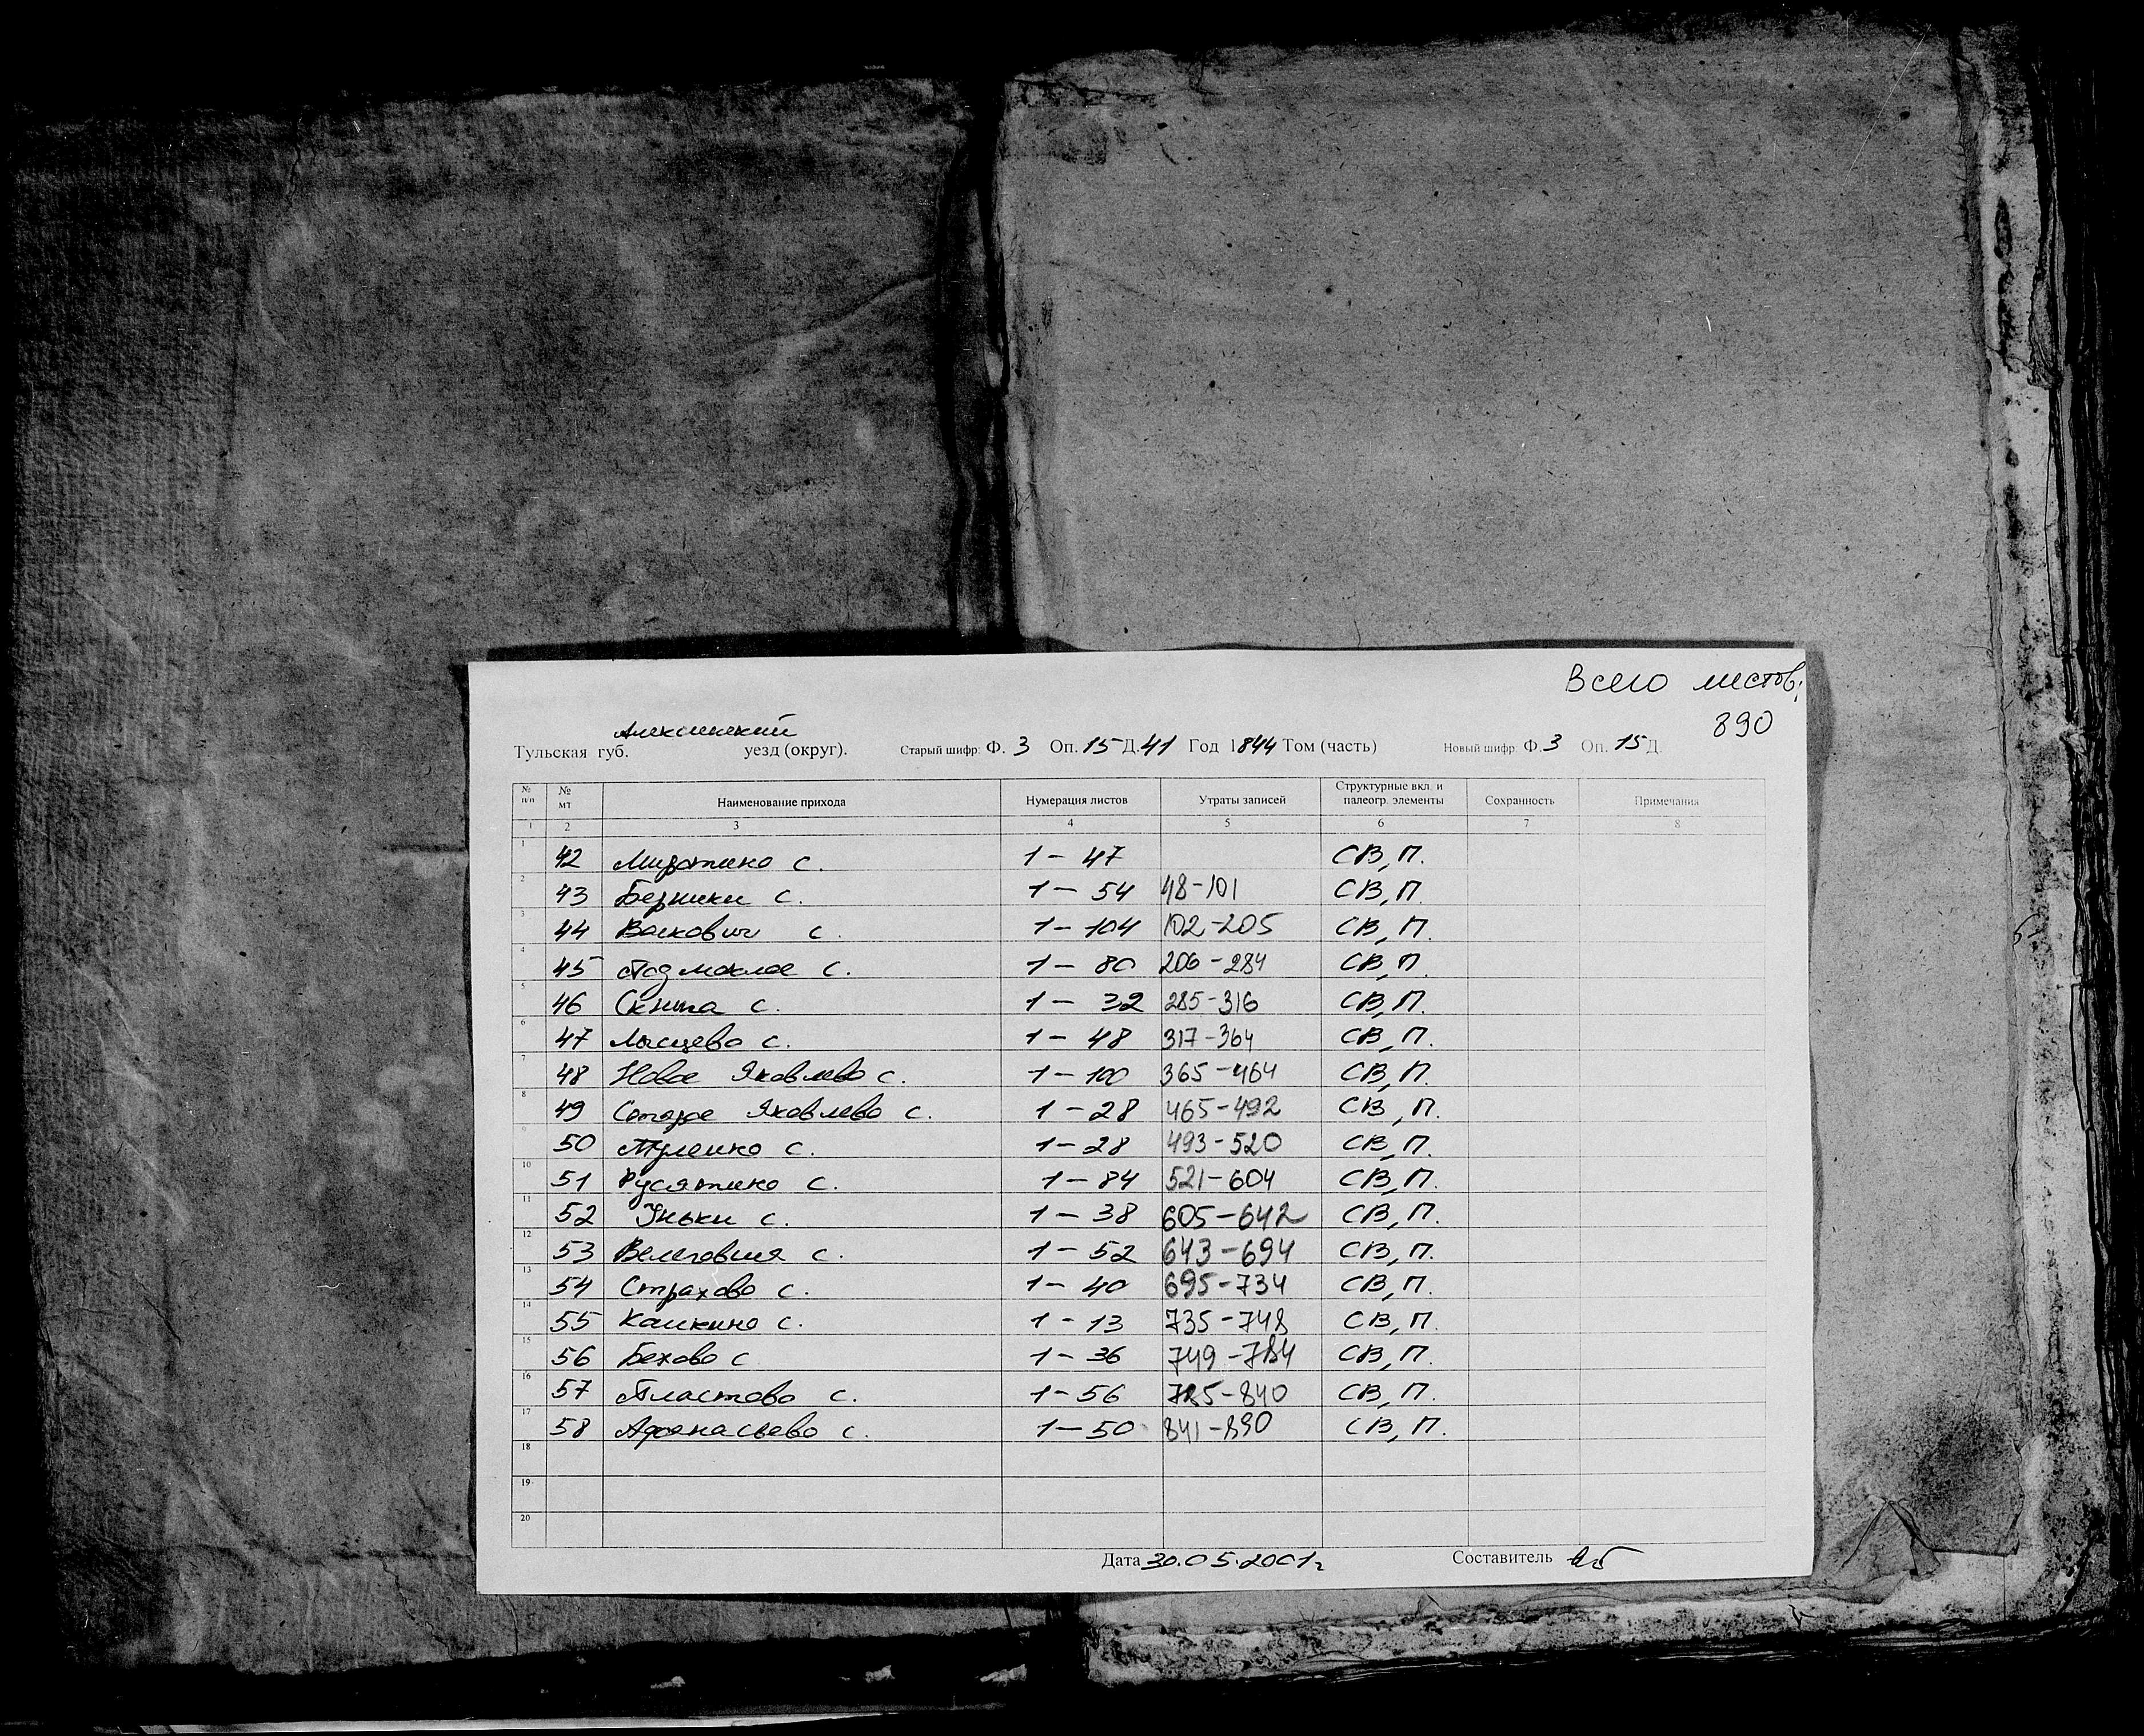 Всего листов:
890
Алексинский
Тульская губ. уезд (округ). Старый шифр: Ф. 3 Оп. 15 Д. 41 Год 1844 Том (часть) Новый шифр: Ф. 3 Оп. 15 Д.
№ п/п № мт Наименование прихода Нумерация листов Утраты записей Структурные вкл. и палеогр. элементы Сохранность Примечания
1 2 3 4 5 6 7 8
1 42 с. 1 - 47 СВ, П.
2 43 Берники с. 1 - 54 48-101 СВ, П.
3 44 с. 1 - 104 102-205 СВ, П.
4 45 Подмоклое с. 1 - 80 206-284 СВ, П.
5 46 Скнипа с. 1 - 32 285-316 СВ, П.
6 47 Лысцево с. 1 - 48 317-364 СВ, П.
7 48 Новое Яковлево с. 1 - 100 365-464 СВ, П.
8 49 Старое Яковлево с. 1 - 28 465-492 СВ, П.
9 50 с. 1 - 28 493-520 СВ, П.
10 51 Русятино с. 1 - 84 521-604 СВ, П.
11 52 Уньки с. 1 - 38 605-642 СВ, П.
12 53 с. 1 - 52 643-694 СВ, П.
13 54 Страхово с. 1 - 40 695-734 СВ, П.
14 55 с. 1 - 13 735-748 СВ, П.
15 56 Бехово с 1 - 36 749-784 СВ, П.
16 57 Пластово с. 1 - 56 785-840 СВ, П.
17 58 Афанасьево с. 1 - 50 841-890 СВ, П.
18
19
20
Дата 30.05.2001 г. Составитель